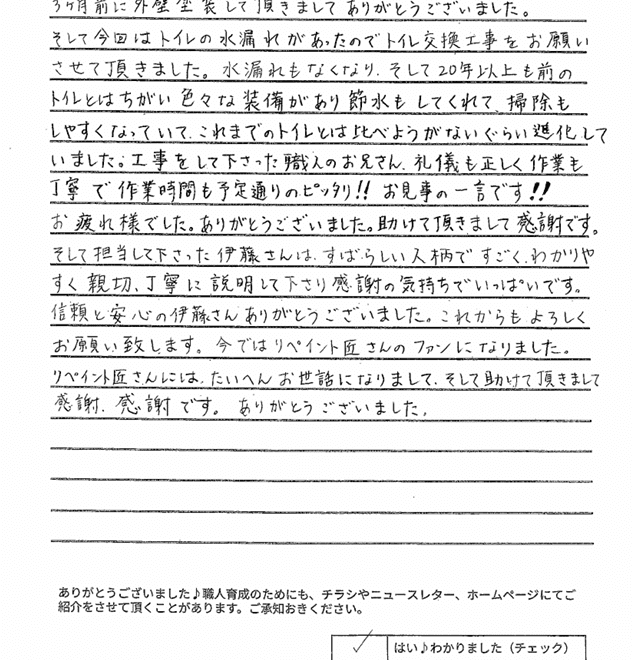 3ヶ月前に外壁塗装して頂きましてありがとうございました。
そして今回はトイレの水漏れがあったのでトイレ交換工事をお願い
させて頂きました。水漏れもなくなり、そして20年以上も前の
トイレとはちがい色々な装備があり節水もしてくれて、掃除も
しやすくなっていて、これまでのトイレとは比べようがないぐらい進化して
いました。工事をして下さった職人のお兄さん、礼儀も正しく作業も
丁寧で作業時間も予定通りのピッタリ!!お見事の一言です!!
お疲れ様でした。ありがとうございました。助けて頂きまして感謝です。
そして担当して下さった伊藤さんは、すばらしい人柄ですごく、わかりや
すく親切、丁寧に説明して下さり感謝の気持ちでいっぱいです。
信頼と安心の伊藤さんありがとうございました。これからもよろしく
お願い致します。今ではリペイント匠さんのファンになりました。
リペイント匠さんには、たいへんお世話になりまして、そして助けて頂きまして
感謝、感謝です。ありがとうございました。
ありがとうございました♪職人育成のためにも、チラシやニュースレター、ホームページにてご
紹介をさせて頂くことがあります。ご承知おきください。
はい♪わかりました（チェック）